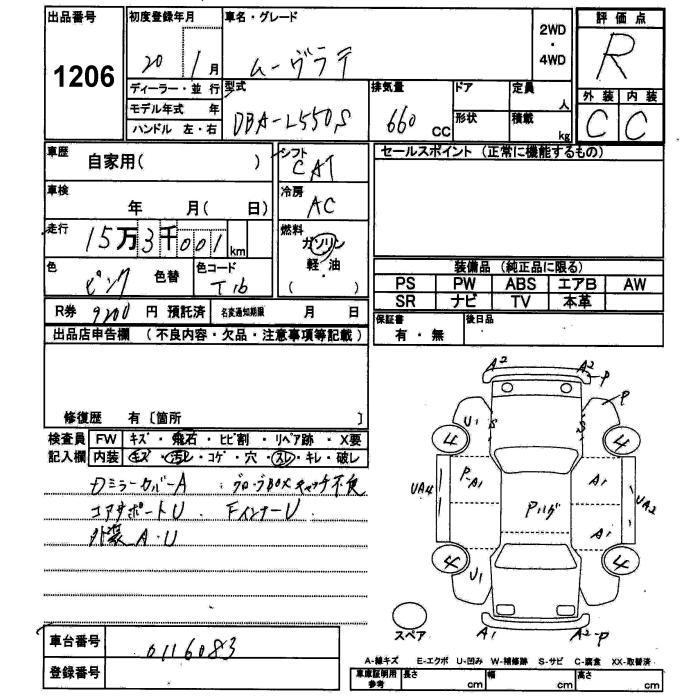 出品番号 初度登録年月 車名・グレード 2WD・4WD 評価点
1206 20 1月 ムーヴラテ R
ディーラー・並行 型式 排気量 ドア 定員 人 外装 内装
モデル年式 年 DBA-L550S 660 CC 形状 積載 kg C C
ハンドル 左・右
車歴 自家用( ) シフト CAT セールスポイント (正常に機能するもの)
車検 年 月( 日) 冷房 AC
走行 15万3千001km 燃料 ガソリン
軽・油
( )
色 ピンク 色替 色コード T16
装備品 (純正品に限る)
PS PW ABS エアB AW
SR ナビ TV 本革
R券 9200 円 預託済 名変通知期限 月 日
保証書 有・無 後日品
出品店申告欄 (不良内容・欠品・注意事項等記載)
修復歴 有〔箇所 〕
検査員 FW キズ・飛石・ヒビ割・リペア跡・X要
記入欄 内装 キズ・汚レ・コゲ・穴・スレ・キレ・破レ
DミラーカバーA グローブBOXキャッチ不良
コアサポートU FインナーU
外装A・U
A2 A2-P
P
U1 S S
4 4
P-A1 A1
UA4 Pハゲ UA2
A1
4 4
U1
スペア A1 A2-P
A-線キズ E-エクボ U-凹み W-補修跡 S-サビ C-腐食 XX-取替済
車台番号 0116083
登録番号
車庫証明用参考 長さ cm 幅 cm 高さ cm